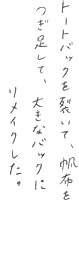 トートバックを裂いて、帆布を
つぎ足して、大きなバックに
リメイクした。